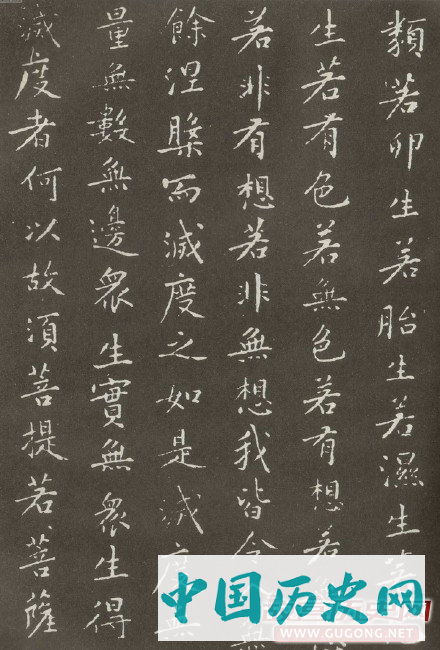 類若卵生若胎生若濕生若
生若有色若無色若有想若
若非有想若非無想我皆令
餘涅槃而滅度之如是滅度無
量無數無邊眾生實無眾生得
滅度者何以故須菩提若菩薩
中国历史网
WWW.GUGONG.NET